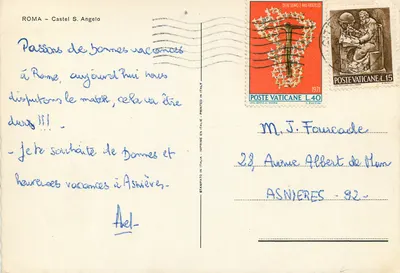 ROMA - Castel S. Angelo
Passons de bonnes vacances
à Rome, aujourd'hui nous
disputons le match, cela va être
durs !!!
- Je te souhaite de bonnes et
heureuses vacances à Asnières -
1971
POSTE VATICANE L. 40
POSTE VATICANE L. 15
M. J. Foucade
28, Avenue Albert de Mun
ASNIERES - 92 -